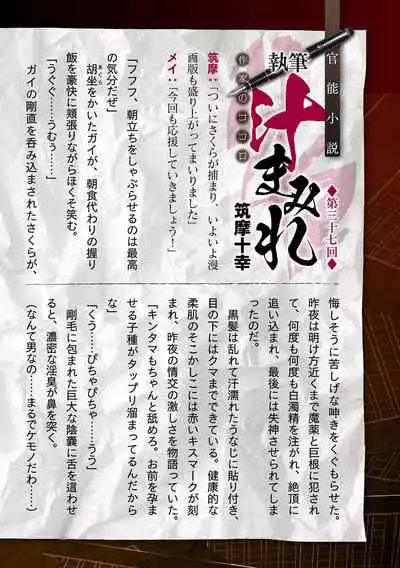 官能小説
執筆
作家のココロ
汁まみれ
◆第三十七回◆
筑摩十幸
筑摩：「ついにさくらが捕まり、いよいよ漫
画版も盛り上がってまいりました」
メイ：「今回も応援していきましょう！」
「フフフ、朝立ちをしゃぶらせるのは最高
の気分だぜ」
胡坐をかいたガイが、朝食代わりの握り
あぐら
飯を豪快に頬張りながらほくそ笑む。
「うぐぐ……うむぅ……」
ガイの剛直を呑み込まされたさくらが、
悔しそうに苦しげな呻きをくぐもらせた。
昨夜は明け方近くまで魔薬と巨根に犯され
て、何度も何度も白濁精を注がれ、絶頂に
追い込まれ、最後には失神させられてしま
ったのだ。
黒髪は乱れて汗濡れたうなじに貼り付き、
目の下にはクマまでできている。健康的な
柔肌のそこかしこには赤いキスマークが刻
まれ、昨夜の情交の激しさを物語っていた。
「キンタマもちゃんと舐めろ。お前を孕ま
せる子種がタップリ溜まってるんだから
な」
「くう……ぴちゃぴちゃ……うう」
剛毛に包まれた巨大な陰嚢に舌を這わせ
ると、濃密な淫臭が鼻を突く。
（なんて男なの……まるでケモノだわ……）